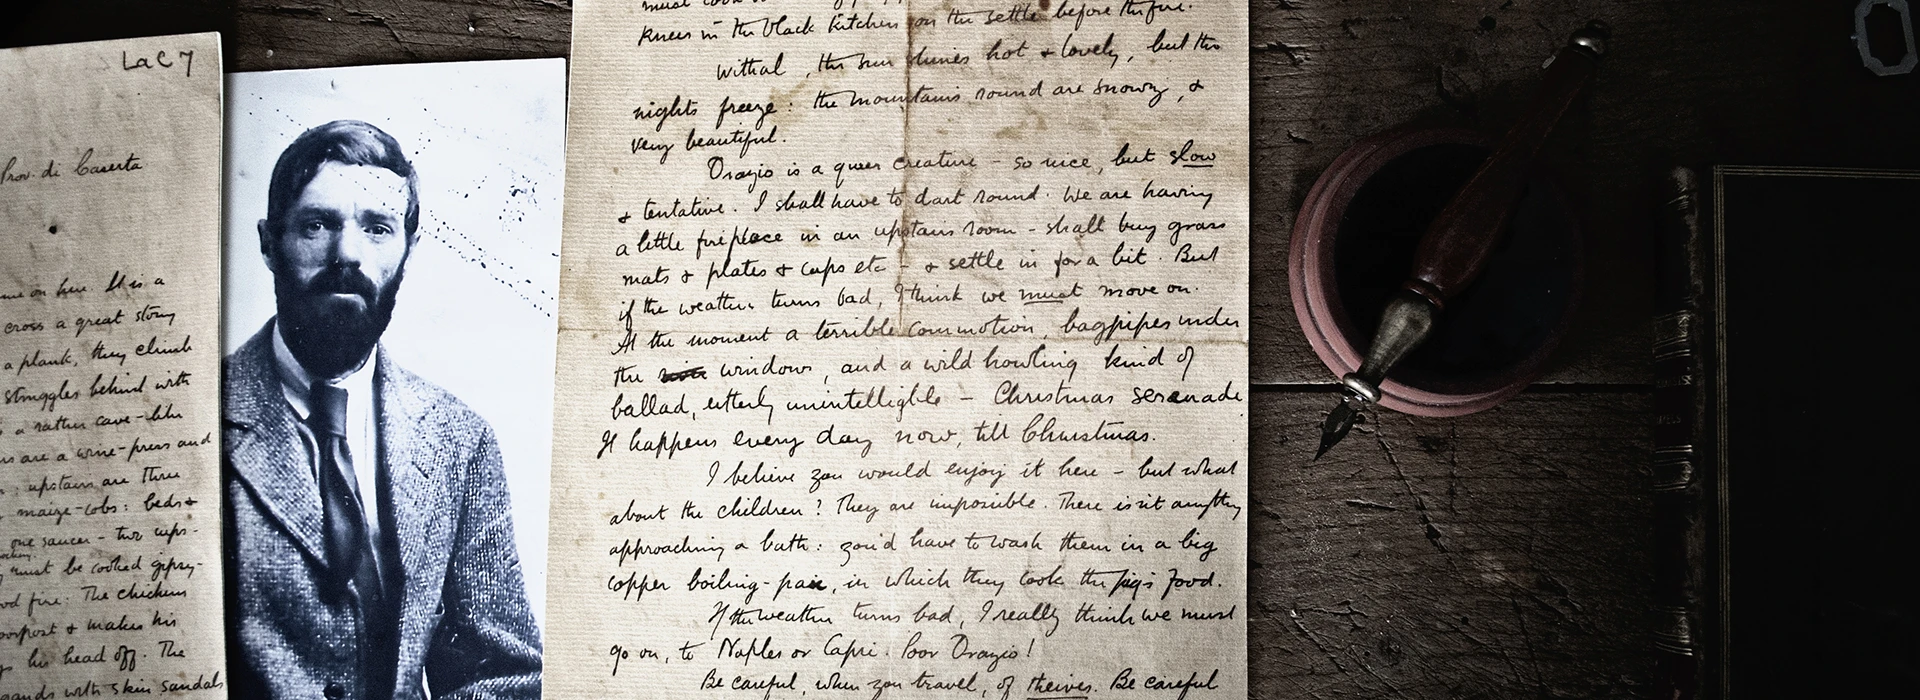 LaC 7
Prov. di Caserta
me on here It is a
cross a great stony
a plank, they climb
struggles behind with
a rather cave-like
are a wine-press and
upstairs are three
maize-cobs: beds &
one saucer - two cups -
must be cooked gipsy-
fire: The chickens
& makes his
his head off. The
with skin sandals
must cook
knees in the black kitchen on the settle before the fire.
withal, the sun shines hot & lovely, but the
nights freeze: the mountains round are snowy, &
very beautiful.
Orazio is a queer creature - so nice, but slow
& tentative. I shall have to dart round. We are having
a little fireplace in an upstairs room - shall buy grass
mats & plates & cups etc - & settle in for a bit. But
if the weather turns bad, I think we must move on.
At the moment a terrible commotion, bagpipes under
the windows, and a wild howling kind of
ballad, utterly unintelligible - Christmas serenade
It happens every day now, till Christmas.
I believe you would enjoy it here - but what
about the children? They are impossible. There isn't anything
approaching a bath: you'd have to wash them in a big
copper boiling-pan, in which they cook the pig's food.
If the weather turns bad, I really think we must
go on, to Naples or Capri. Poor Orazio!
Be careful, when you travel, of theives. Be careful